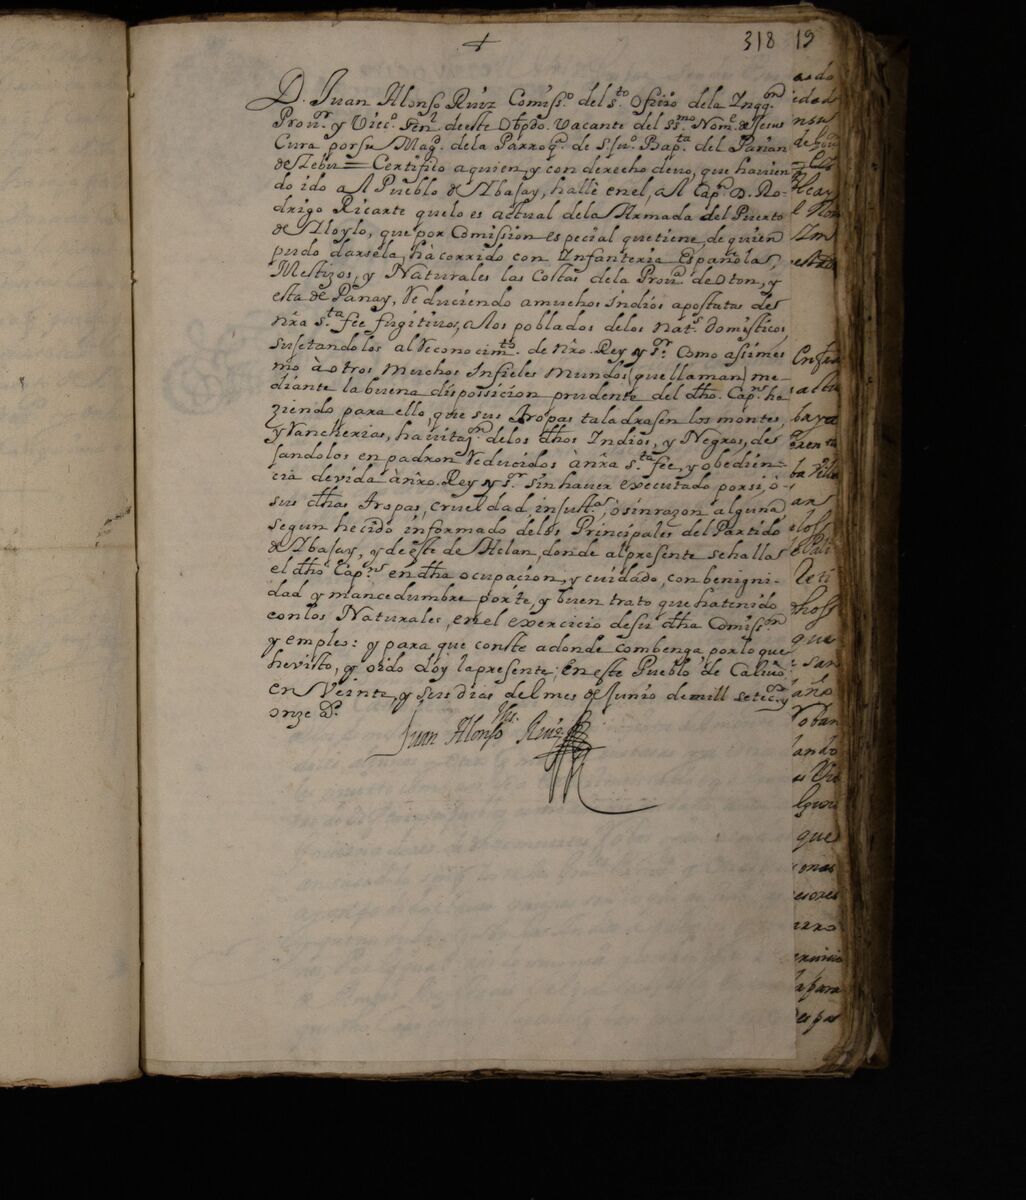 +
318 19
D. Juan Alonso Ruiz Comiss.o del s.to Ofizio dela Inqq.on
Prov.r y Vic.o Gen.l de este Obpdo. Vacante del SS.mo Nom.e de Jesus
Cura por su Mag.d dela Parroq.a de S. Ju.o Bap.ta del Parian
de Zebu = Certifico a quien, y con derecho devo, que havien
do ido al Pueblo de Ibajay, hallè en el, al Cap.n D. Ro-
drigo Ricarte que lo es actual dela Armada del Puerto
de Yloylo, que por Comission especial que tiene, de quien
pudo darsela, hà corrido con Infanteria Española,
Mestizos, y Naturales las Costas dela Prov.a de Oton, y
esta de Panay, reduciendo a muchos indios apostatas de
nra s.ta fee fugitivos, a los poblados delos nat.s domisticos,
sujetandolos al reconocim.to de nro. Rey y S.r Como assimes
mo à otros muchos infieles Mundos (que llaman) me-
diante la buena disposicion prudente del dho. Cap.n ha
ziendo para ello, que sus tropas taladrasen los montes,
y rancherias, havitaz.on delos dhos Indios, y Negros, de
jandolos en padron reducidos à nra s.ta fee, y obedien-
cia devida à nro. Rey y S.r sin haver executado por si, ò
sus dhas tropas, crueldad, injust.a, ò sinrazon alguna
segun he cido informado delos Principales del Partido
de Ibajay, y de este de Aclan, donde al presente se halla
el dho Cap.n en dha ocupacion, y cuidado, con benigni-
dad y mancedumbre porte, y buen trato que ha tenido
con los Naturales, en el exercicio de su dha Comiss.on
y empleo: y para que conste a donde combenga, por lo que
he visto, y oido doy la presente; En este Pueblo de Calivo
en Veinte, y seis dias del mes de Junio de mill setec.os y
onze a.s
Jhs.
Juan Alonso Ruiz